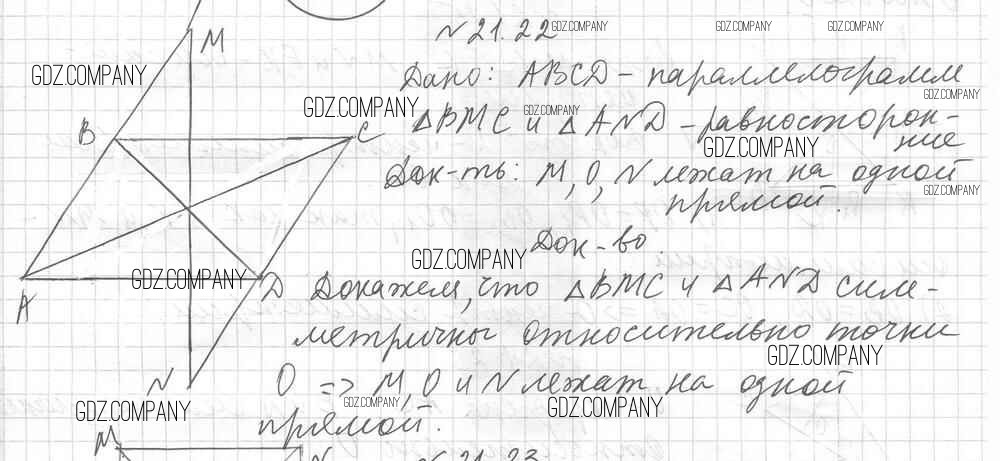 N 21.22 GDZ.COMPANY GDZ.COMPANY GDZ.COMPANY
M
GDZ.COMPANY
Дано: ABCD - параллелограмм
GDZ.COMPANY
GDZ.COMPANY
GDZ.COMPANY
△BMC и △AND - равносторон-
ние
B C
GDZ.COMPANY
Док-ть: M, O, N лежат на одной
GDZ.COMPANY
прямой.
Док-во.
GDZ.COMPANY
GDZ.COMPANY
A D
Докажем, что △BMC и △AND сим-
метричны относительно точки
GDZ.COMPANY
N
O => M, O и N лежат на одной
GDZ.COMPANY
GDZ.COMPANY
GDZ.COMPANY
прямой.
M
N
N 21.23